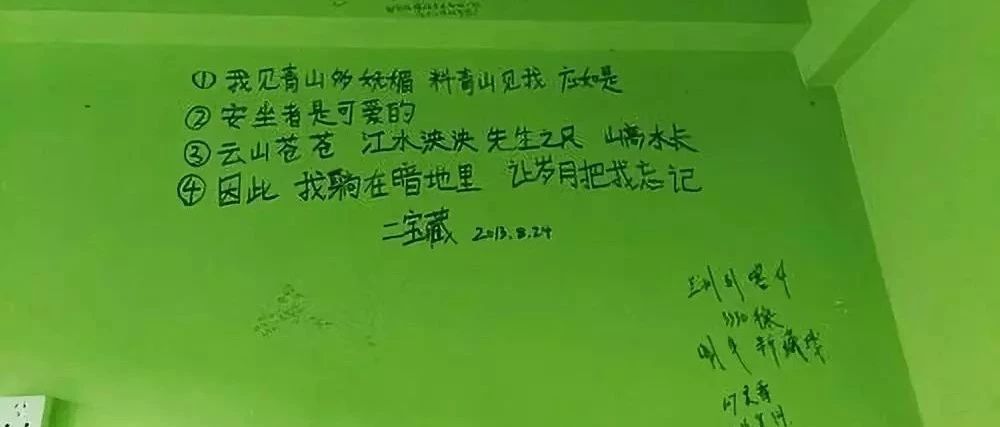 ① 我见青山多妩媚 料青山见我 应如是
② 安坐者是可爱的
③ 云山苍苍 江水泱泱 先生之风 山高水长
④ 因此 我躺在暗地里 让岁月把我忘记
二宝藏 2013.8.24
新藏线